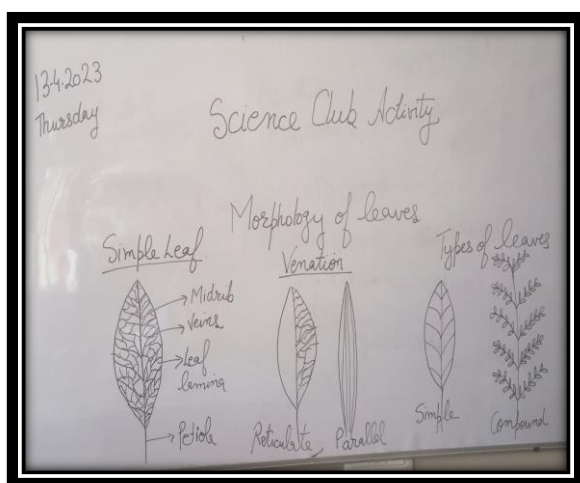 13.4.2023
Thursday
Science Club Activity
Morphology of leaves
Simple Leaf
Midrib
Veins
Leaf
lamina
Petiole
Venation
Reticulate
Parallel
Types of leaves
Simple
Compound